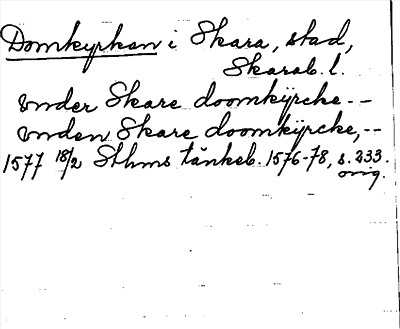 Domkyrkan i Skara, stad,
Skarab. l.
vnder Skare doomkÿrche --
vnden Skare doomkÿrcke, --
1577 18/2 Sthms tänkeb. 1576-78, s. 233.
orig.